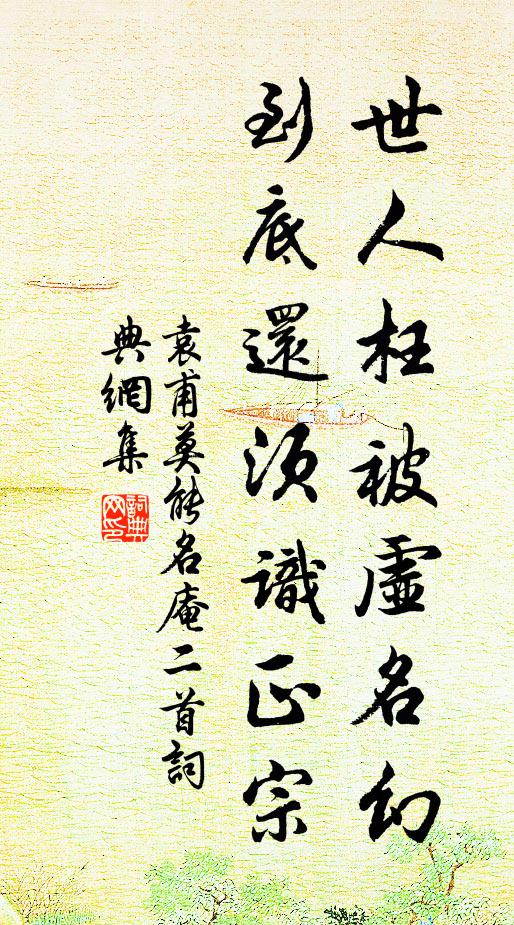 世人枉被虛名幻
到底還須識正宗
袁甫莫能名庵二首詞
典網集
詞典網印